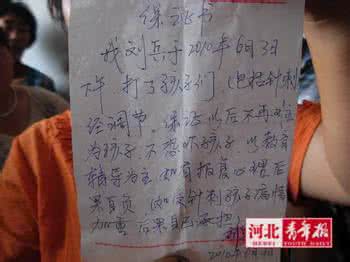 保证书
我刘兵于2010年6月3日
下午打了孩子们(包括针刺
经调节,保证以后不再
为孩子,不恐吓孩子,以教育
辅导为主,如有报复心理后
果自负(如使针刺孩子病情
加重后果自己承担)
2010年6月
河北青年报
HEBEI YOUTH DAILY